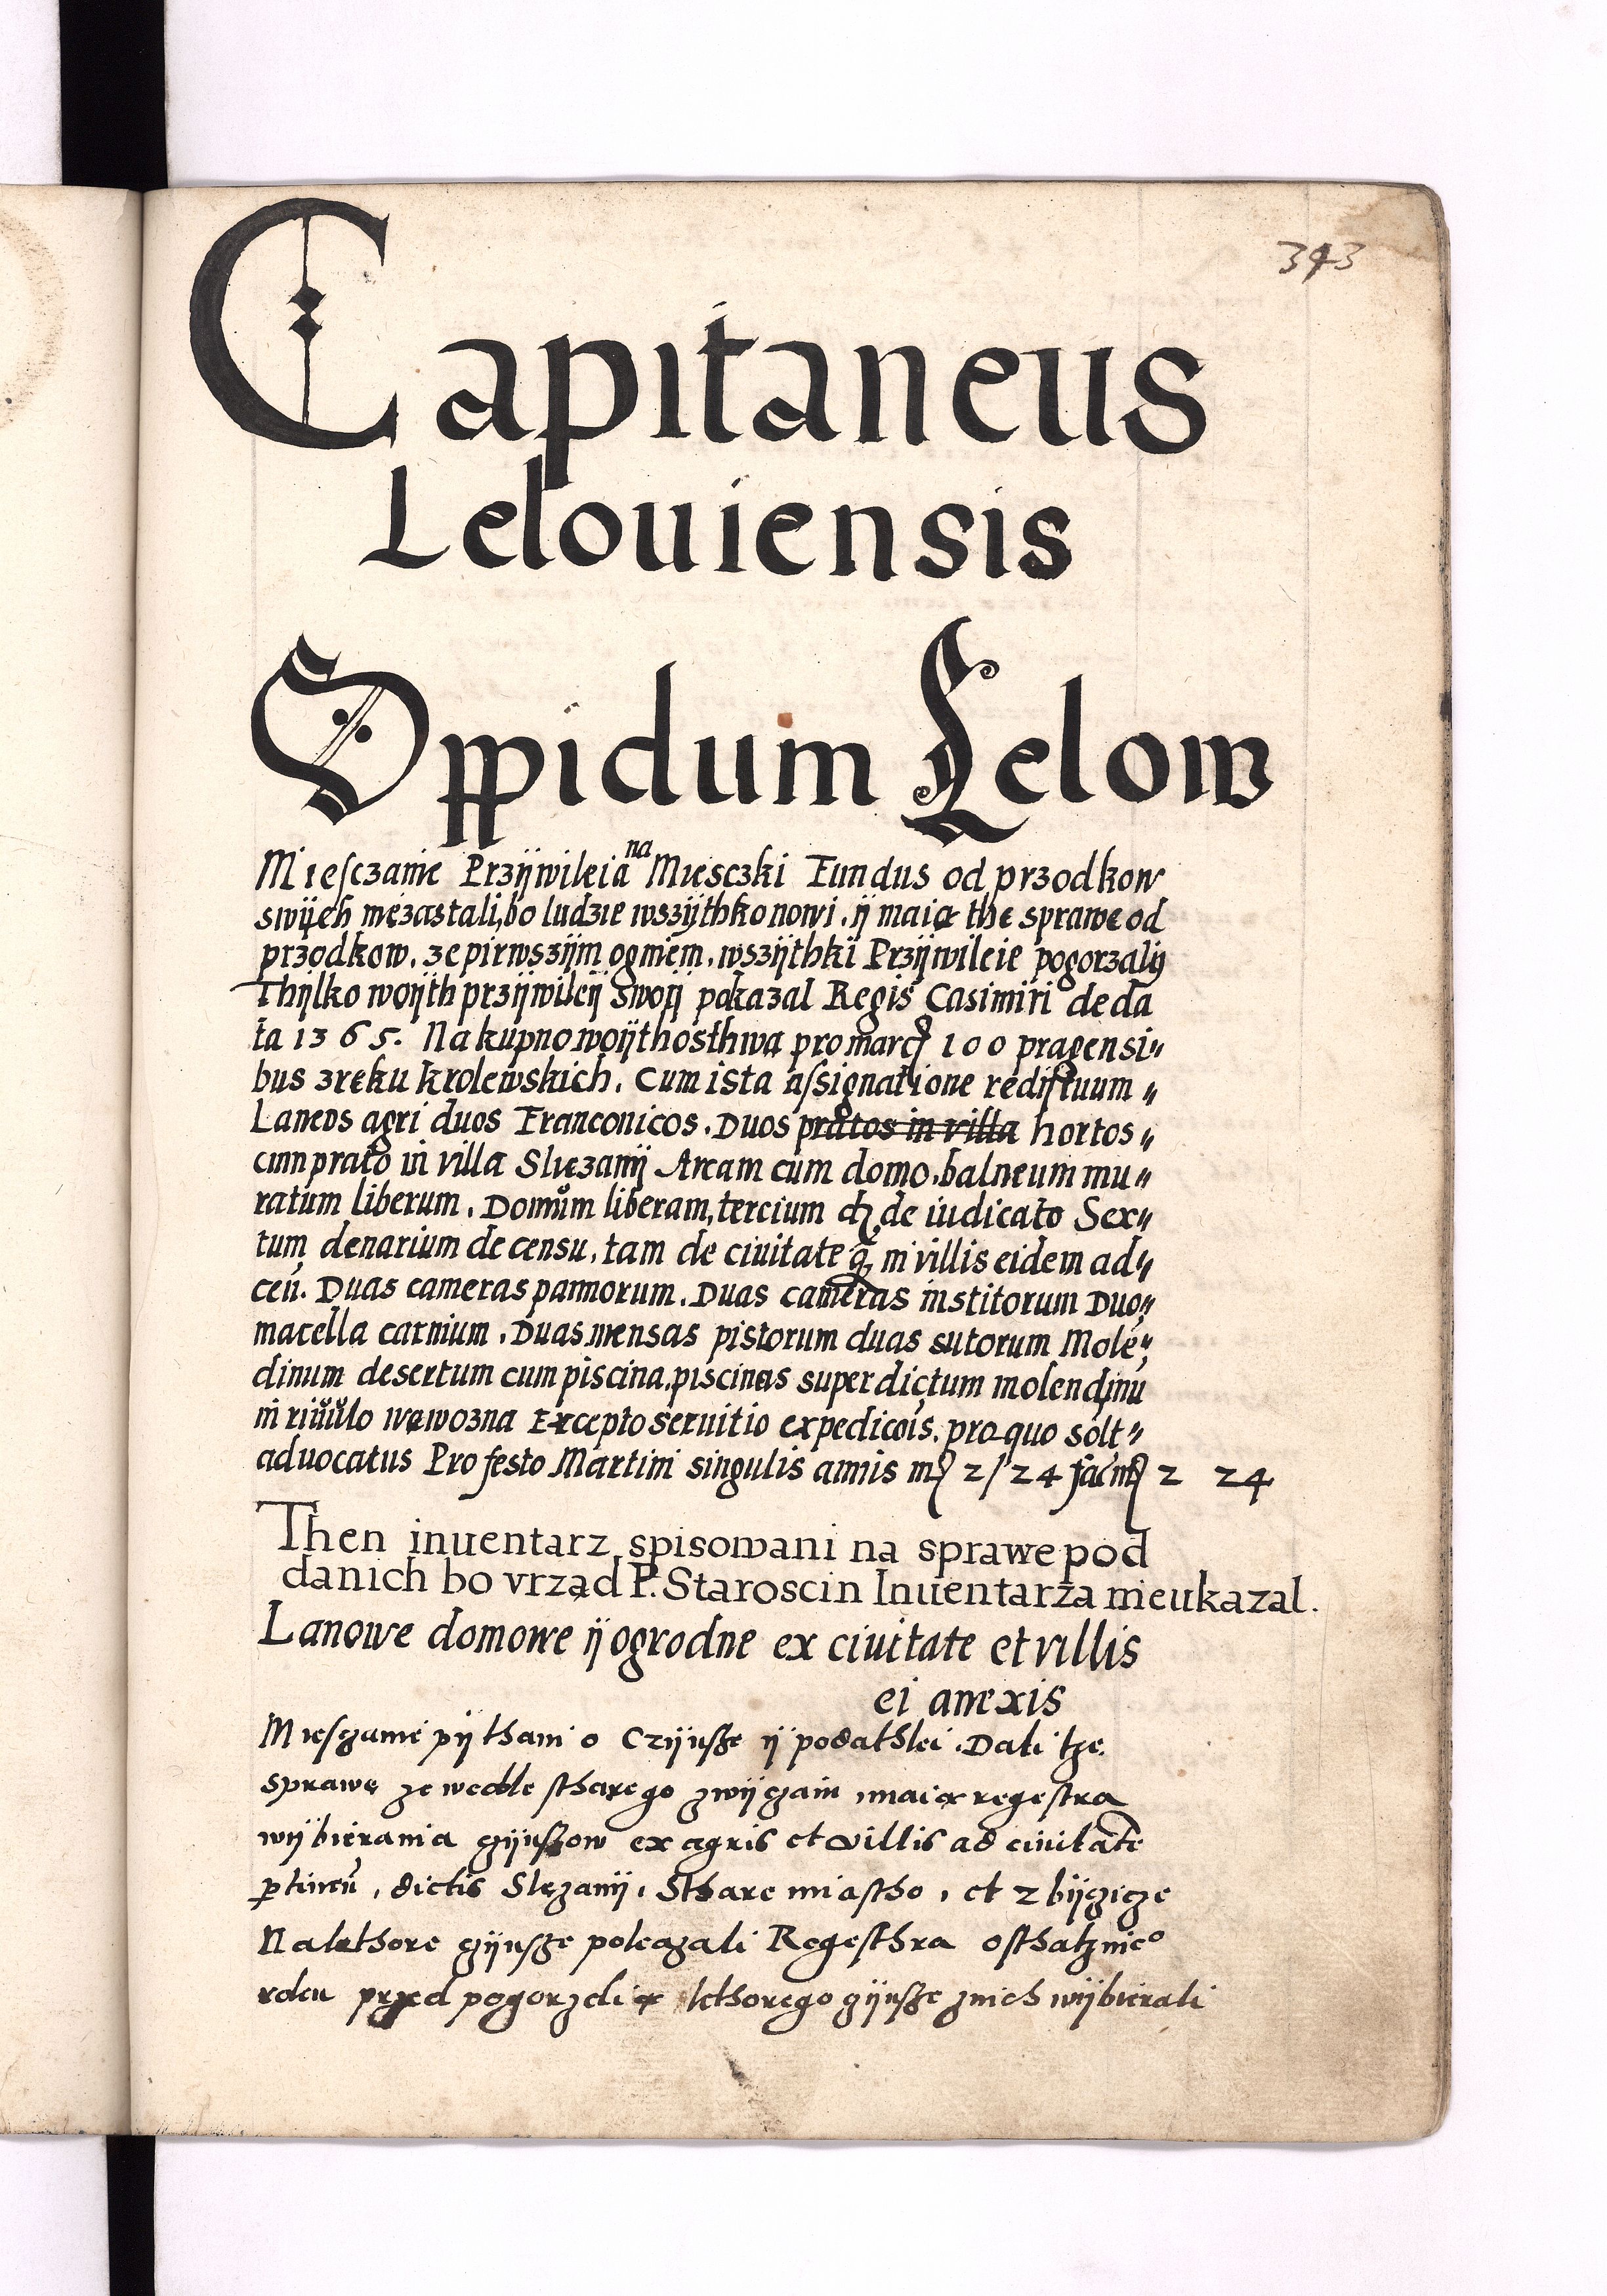 343
Capitaneus
Lelouiensis
Oppidum Lelow
Miesczanie Przÿwileia na Miesczki Fundus od przodkow
swÿch niezastali, bo ludzie wszÿthko nowi. ÿ maią the sprawe od
przodkow. ze pirwszÿm ogniem. wszÿthki Przÿwileie pogorzalÿ
Thÿlko woÿth przÿwileÿ swoÿ pokazal Regis Casimiri de da
ta 1365. Na kupno woÿthosthwa pro marcis 100 pragensi〃
bus zręku krolewskich. Cum ista assignatione redituum〃
Laneos agri duos Franconicos. Duos pratos in villa hortos〃
cum prato in villa Slęzanÿ Aream cum domo. balneum mu〃
ratum liberum. Domum liberam, tercium de iudicato Sex〃
tum denarium de censu. tam de ciuitate in villis eidem ad〃
ceñ. Duas cameras pannorum. Duas cameras institorum Duo〃
macella carnium. Duas mensas pistorum duas sutorum Molé〃
dinum desertum cum piscina, piscinas super dictum molendinū
in riuulo wąwozna Excepto seruitio expedicois. pro quo solt〃
aduocatus Pro festo Martini singulis annis 2/24 2 24
Then inuentarz spisowani na sprawe pod
danich bo vrząd P. Staroscin Inuentarza nieukazal.
Lanowe domowe ÿ ogrodne ex ciuitate et villis
ei anexis
Miesczanie pÿthani o Czÿnsze ÿ podathki. Dali tze
sprawę ze wedle stharego zwÿczain, maią regestra
wÿbierania czÿnszow ex agris et villis ad ciuitatē
ptineñ, dictis Slęzanÿ, Sthare miastho, et zbÿczicze
Nakthore czÿnsze polegali Regesthra osthatznieº
roku przed pogorzelią kthorego czÿnsze znich wÿbierali